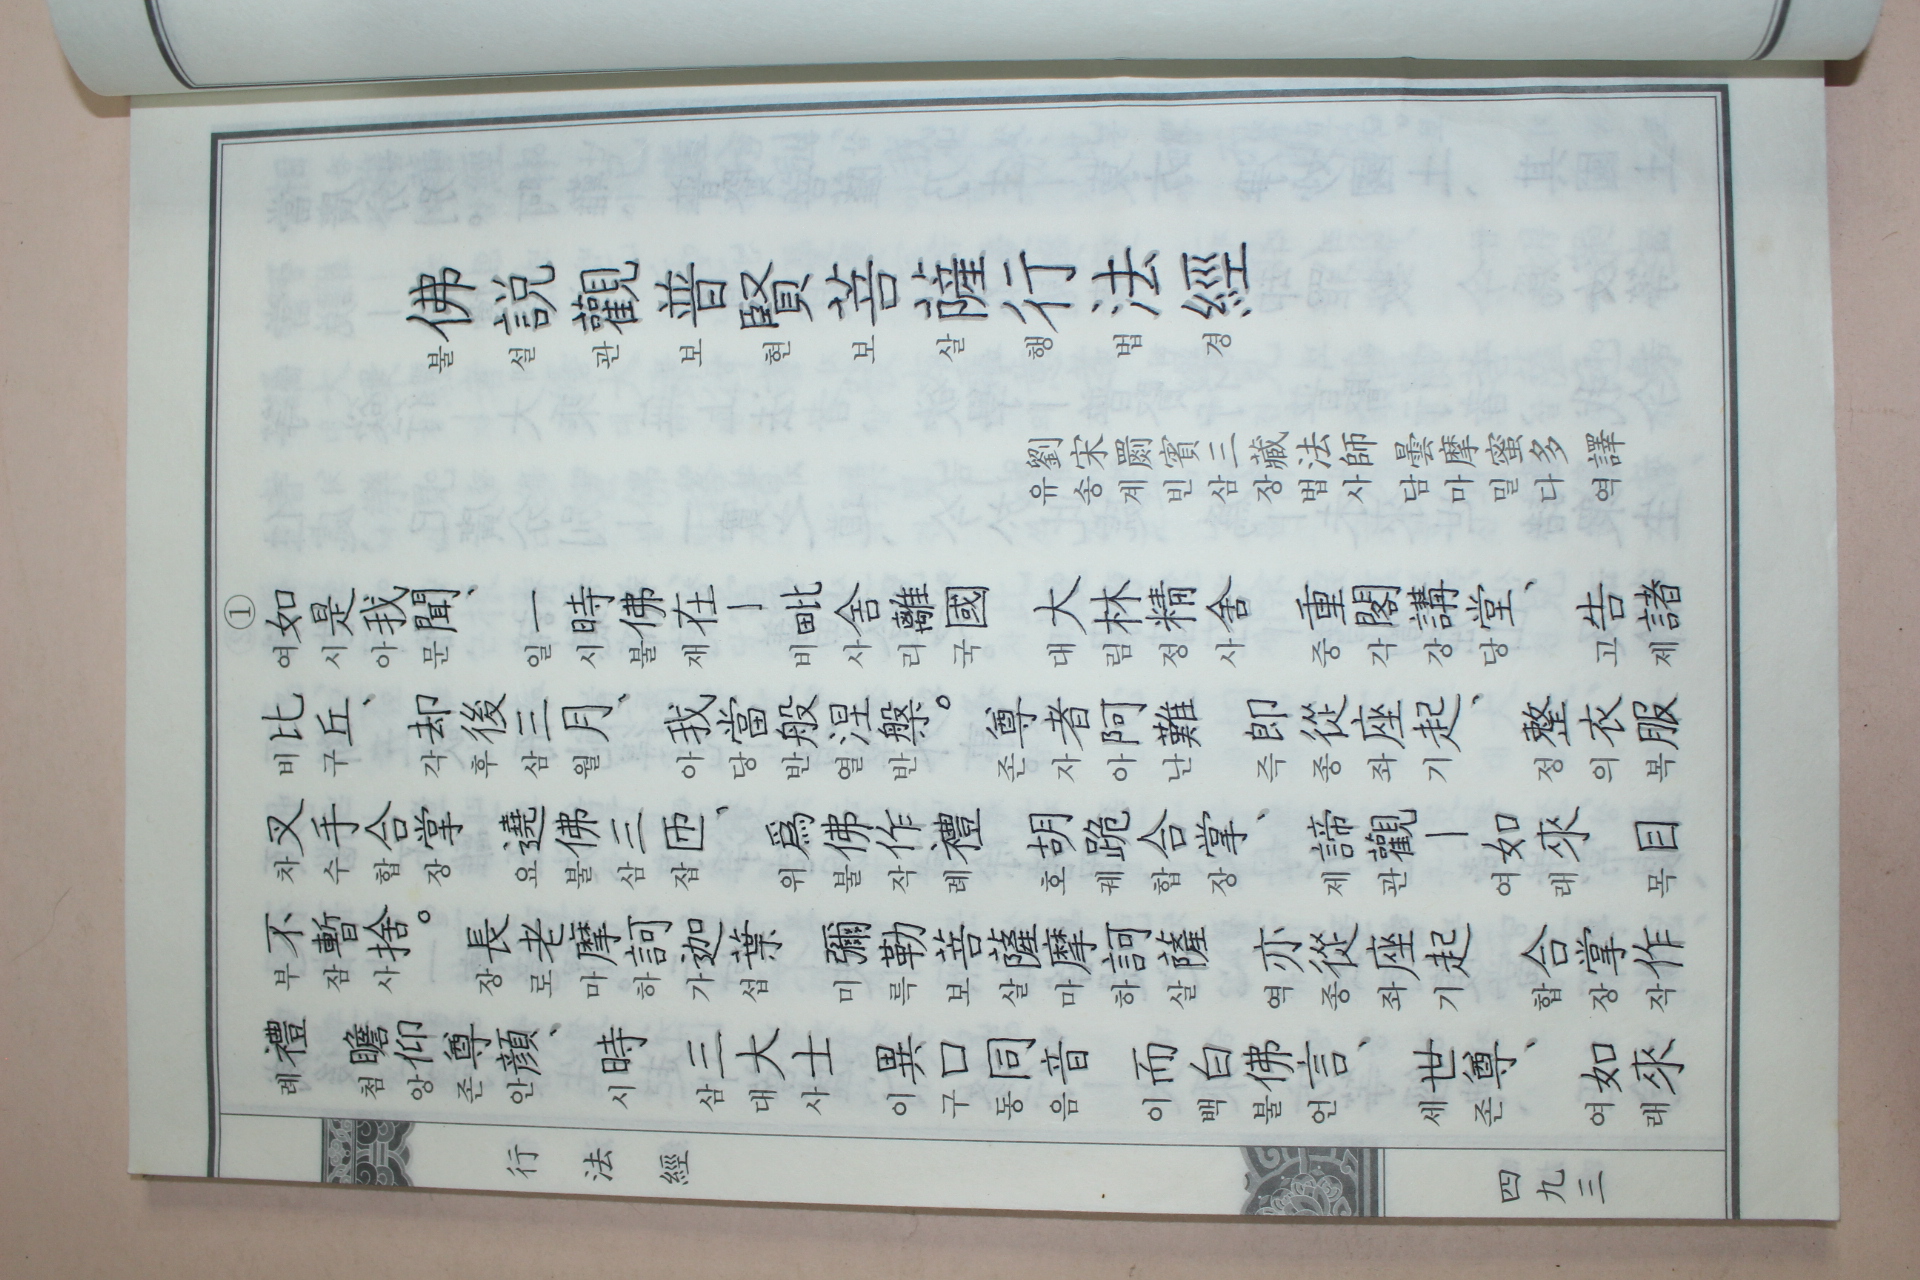 佛說觀普賢菩薩行法經
불설관보현보살행법경
劉宋罽賓三藏法師 曇摩蜜多 譯
유송계빈삼장법사 담마밀다 역
①
如是我聞、 一時佛在ㅣ毗舍離國 大林精舍 重閣講堂、 告諸
여시아문 일시불재 비사리국 대림정사 중각강당 고제
比丘、 却後三月、 我當般涅槃。 尊者阿難 卽從座起、 整衣服
비구 각후삼월 아당반열반 존자아난 즉종좌기 정의복
叉手合掌 遶佛三匝、 爲佛作禮 胡跪合掌、 諦觀ㅣ如來 目
차수합장 요불삼잡 위불작례 호궤합장 제관 여래 목
不暫捨。 長老摩訶迦葉 彌勒菩薩摩訶薩 亦從座起 合掌作
부잠사 장로마하가섭 미륵보살마하살 역종좌기 합장작
禮 瞻仰尊顔、 時三大士 異口同音 而白佛言、 世尊、 如來
례 첨앙존안 시삼대사 이구동음 이백불언 세존 여래
行法經
四九三